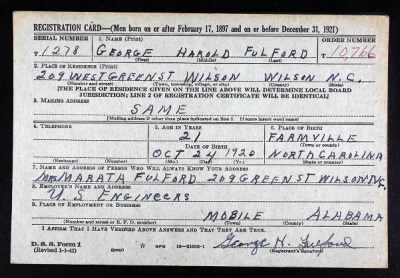 REGISTRATION CARD—(Men born on or after February 17, 1897 and on or before December 31, 1921)
SERIAL NUMBER 1. NAME (Print) ORDER NUMBER
T 1278 GEORGE HAROLD FULFORD T 10,766
(First) (Middle) (Last)
2. PLACE OF RESIDENCE (Print)
209 WEST GREEN ST WILSON WILSON N.C.
(Number and street) (Town, township, village, or city) (County) (State)
[THE PLACE OF RESIDENCE GIVEN ON THE LINE ABOVE WILL DETERMINE LOCAL BOARD
JURISDICTION; LINE 2 OF REGISTRATION CERTIFICATE WILL BE IDENTICAL]
3. MAILING ADDRESS
SAME
[Mailing address if other than place indicated on line 2. If same insert word same]
4. TELEPHONE 5. AGE IN YEARS 6. PLACE OF BIRTH
21 FARMVILLE
DATE OF BIRTH (Town or county)
OCT 24 1920 NORTH CAROLINA
(Exchange) (Number) (Mo.) (Day) (Yr.) (State or country)
7. NAME AND ADDRESS OF PERSON WHO WILL ALWAYS KNOW YOUR ADDRESS
MRS MARATA FULFORD 209 GREEN ST WILSON N.C.
8. EMPLOYER'S NAME AND ADDRESS
U.S ENGINEERS
9. PLACE OF EMPLOYMENT OR BUSINESS
MOBILE ALABAMA
(Number and street or R. F. D. number) (Town) (County) (State)
I AFFIRM THAT I HAVE VERIFIED ABOVE ANSWERS AND THAT THEY ARE TRUE.
D. S. S. Form 1 GPO George H. Fulford
(Revised 1-1-42) (over) (Registrant's signature)